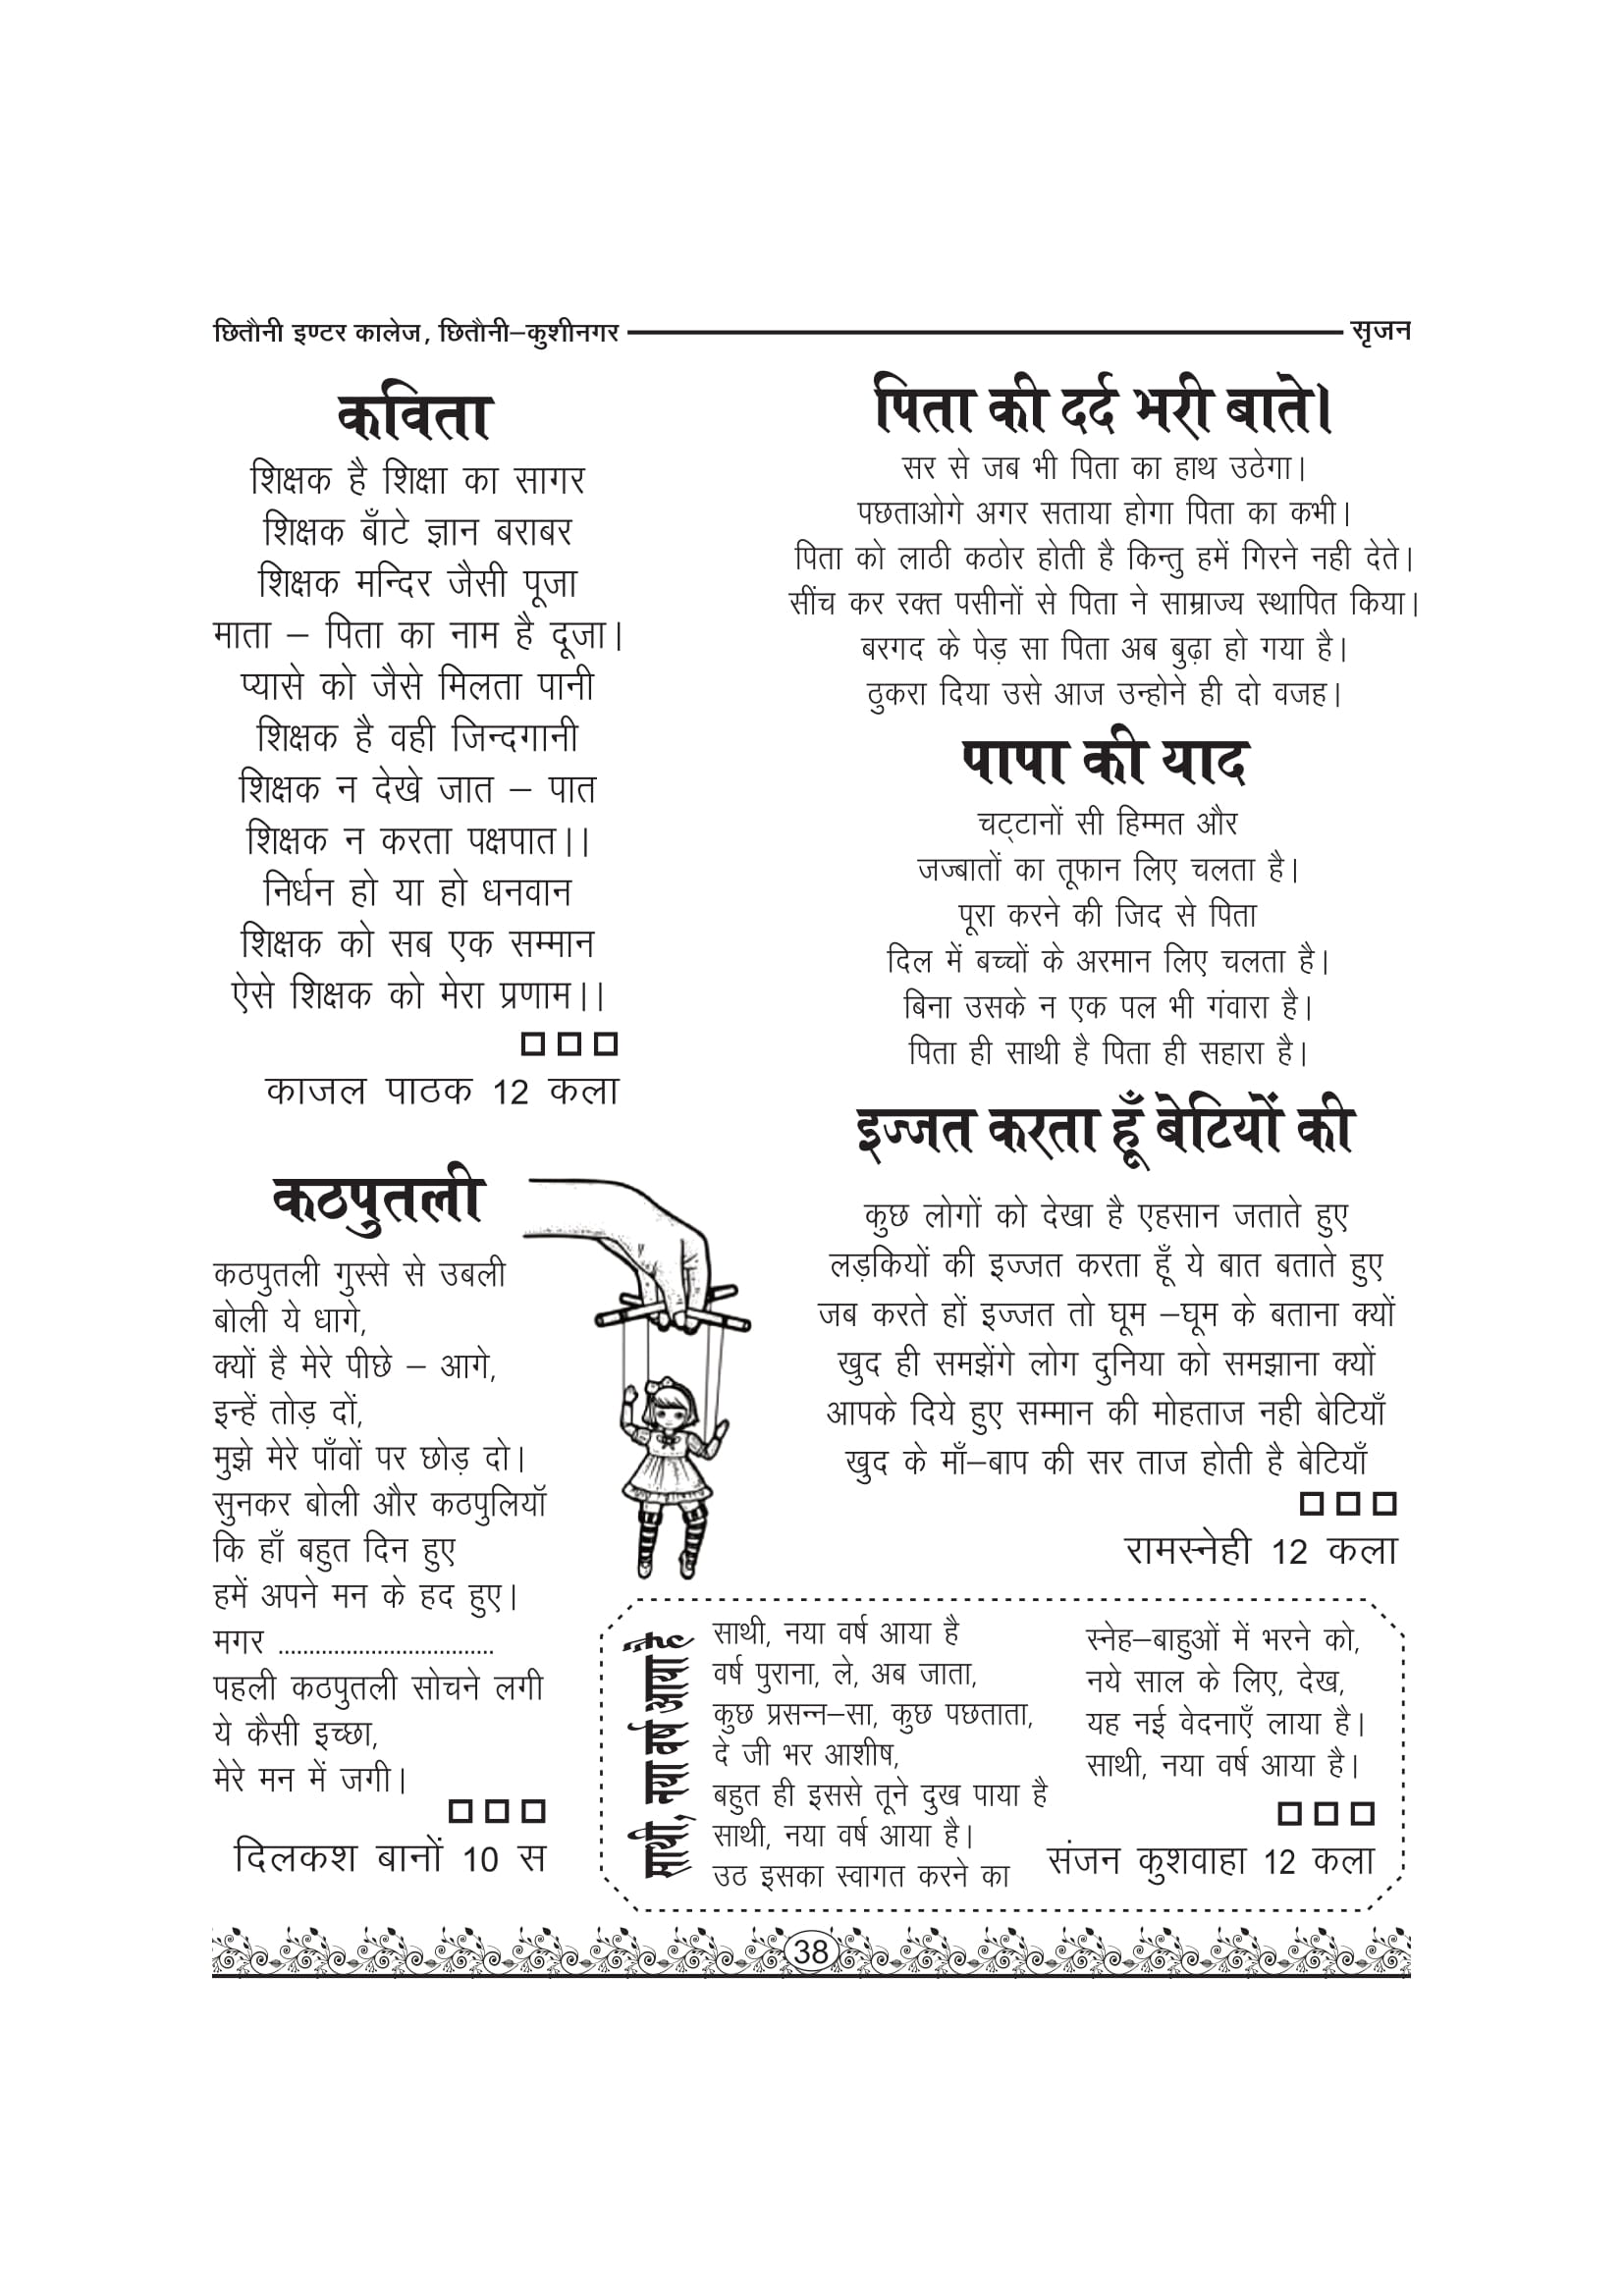 छितौनी इण्टर कालेज, छितौनी–कुशीनगर
सृजन
कविता
शिक्षक है शिक्षा का सागर
शिक्षक बाँटे ज्ञान बराबर
शिक्षक मन्दिर जैसी पूजा
माता – पिता का नाम है दूजा।
प्यासे को जैसे मिलता पानी
शिक्षक है वही जिन्दगानी
शिक्षक न देखे जात – पात
शिक्षक न करता पक्षपात।।
निर्धन हो या हो धनवान
शिक्षक को सब एक सम्मान
ऐसे शिक्षक को मेरा प्रणाम।।
काजल पाठक 12 कला
कठपुतली
कठपुतली गुस्से से उबली
बोली ये धागे,
क्यों है मेरे पीछे – आगे,
इन्हें तोड़ दों,
मुझे मेरे पाँवों पर छोड़ दो।
सुनकर बोली और कठपुलियॉ
कि हाँ बहुत दिन हुए
हमें अपने मन के हद हुए।
मगर ...................................
पहली कठपुतली सोचने लगी
ये कैसी इच्छा,
मेरे मन में जगी।
दिलकश बानों 10 स
पिता की दर्द भरी बाते।
सर से जब भी पिता का हाथ उठेगा।
पछताओगे अगर सताया होगा पिता का कभी।
पिता को लाठी कठोर होती है किन्तु हमें गिरने नही देते।
सींच कर रक्त पसीनों से पिता ने साम्राज्य स्थापित किया।
बरगद के पेड़ सा पिता अब बुढ़ा हो गया है।
ठुकरा दिया उसे आज उन्होने ही दो वजह।
पापा की याद
चट्टानों सी हिम्मत और
जज्बातों का तूफान लिए चलता है।
पूरा करने की जिद से पिता
दिल में बच्चों के अरमान लिए चलता है।
बिना उसके न एक पल भी गंवारा है।
पिता ही साथी है पिता ही सहारा है।
इज्जत करता हूँ बेटियों की
कुछ लोगों को देखा है एहसान जताते हुए
लड़कियों की इज्जत करता हूँ ये बात बताते हुए
जब करते हों इज्जत तो घूम –घूम के बताना क्यों
खुद ही समझेंगे लोग दुनिया को समझाना क्यों
आपके दिये हुए सम्मान की मोहताज नही बेटियाँ
खुद के माँ–बाप की सर ताज होती है बेटियाँ
रामस्नेही 12 कला
साथी, नया वर्ष आया है
साथी, नया वर्ष आया है
वर्ष पुराना, ले, अब जाता,
कुछ प्रसन्न–सा, कुछ पछताता,
दे जी भर आशीष,
बहुत ही इससे तूने दुख पाया है
साथी, नया वर्ष आया है।
उठ इसका स्वागत करने का
स्नेह–बाहुओं में भरने को,
नये साल के लिए, देख,
यह नई वेदनाएँ लाया है।
साथी, नया वर्ष आया है।
संजन कुशवाहा 12 कला
38